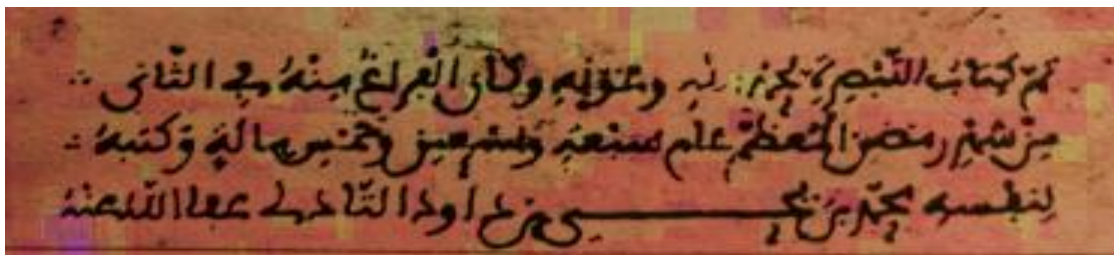 تمّ كتاب التّبصرة بحمد الله وعونه وكان الفراغ منه في الثّاني
من شهر رمضن المعظّم عام سبعة وتسعين وخمس مائة وكتبه
لنفسه محمّد بن يحيى بن داود التّادلي عفا اللّه عنه